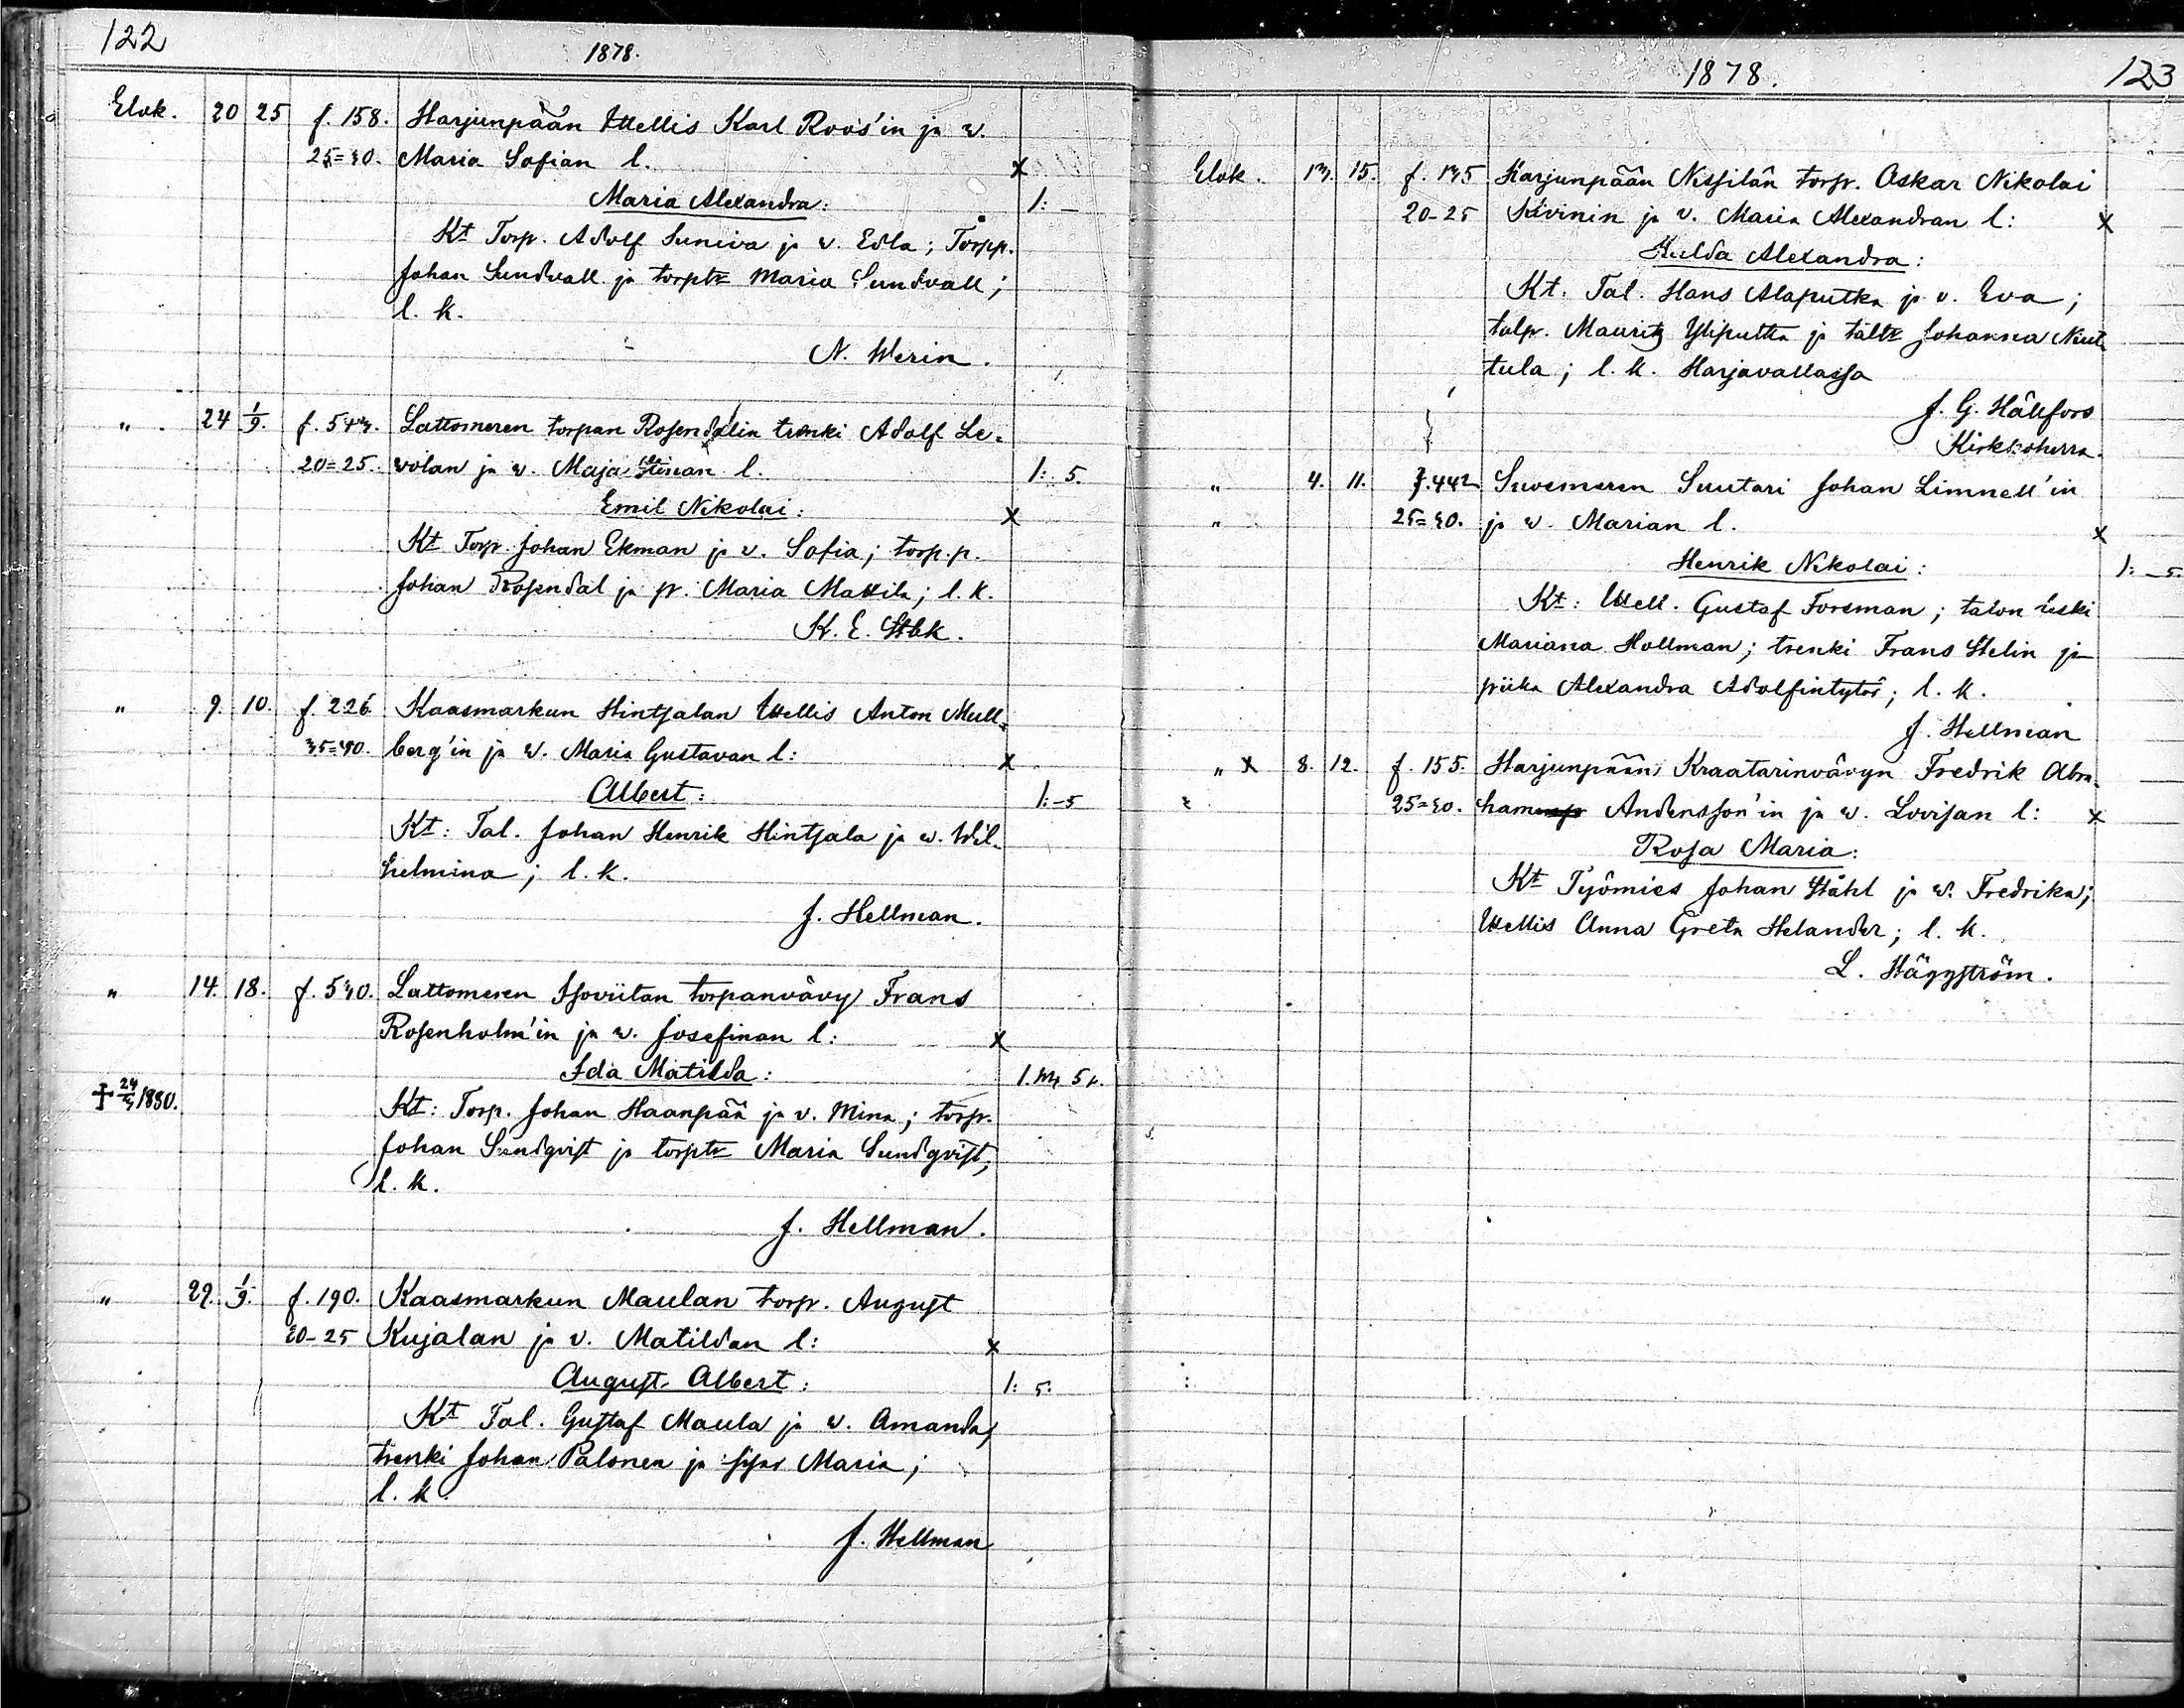 122
1878.
Elok. 20 25 f. 158. Harjunpään Itellis Karl Roos'in ja w.
25=30. Maria Sofian l. x
Maria Alexandra: 1: —
Kt Torp. Adolf Suniva ja w. Edla; Torpp.
Johan Sundvall ja torptr Maria Sundvall;
l. k.
N. Merin.
" 24 1/9. f. 543. Lattomeren torpan Rosendalin trenki Adolf Le=
20=25. volan ja w. Maja Stinan l. 1: 5.
Emil Nikolai: x
Kt Torp. Johan Ekman ja v. Sofia; torp.p.
Johan Rosendal ja p. Maria Mattila; l. k.
K. E. Stbk.
" 9. 10. f. 226 Kaasmarkun Hintsalan Itellis Anton Mull=
35=40. berg'in ja w. Maria Gustavan l: x
Albert: 1:-5
Kt: Tal. Johan Henrik Hintsala ja w. Wil-
helmina; l. k.
J. Hellman.
" 14. 18. f. 530. Lattomeren Isoviitan torpanvävy Frans
Rosenholm'in ja w. Josefinan l: x
Ida Matilda: 1. mk 5 p.
+ 24/3 1880.
Kt: Torp. Johan Haanpää ja v. Mina; torp.
Johan Sundqvist ja torptr Maria Sundqvist;
l. k.
J. Hellman.
" 29. 1/9. f. 190. Kaasmarkun Maulan torp. August
20-25 Kujalan ja v. Matildan l: x
August Albert: 1: 5.
Kt Tal. Gustaf Maula ja w. Amanda;
trenki Johan Palonen ja sisar Maria;
l. k.
J. Hellman
1878.
123
Elok. 13. 15. f. 135 Harjunpään Nissilän torp. Oskar Nikolai
20-25 Kivinin ja v. Maria Alexandran l: x
Hulda Alexandra:
Kt. Tal. Hans Alaputka ja v. Eva;
talp. Mauritz Yliputka ja taltr Johanna Niut-
tula; l. k. Harjavallassa
J. G. Hällfors
Kirkkoherra.
" 4. 11. f. 442 Suosmeren Suutari Johan Limnell'in
" 25=30. ja w. Marian l. x
Henrik Nikolai: 1: -5.
Kt: Itell. Gustaf Forsman; talon leski
Mariana Hollman; trenki Frans Helin ja
piika Alexandra Adolfintytör; l. k.
J. Hellman
" x 8. 12. f. 155. Harjunpään Kraatarinvävyn Fredrik Abra-
25=30. ham Andersson'in ja w. Lovisan l: x
Rosa Maria:
Kt Työmies Johan Ståhl ja w. Fredrika;
Itellis Anna Greta Helander; l. k.
L. Häggström.